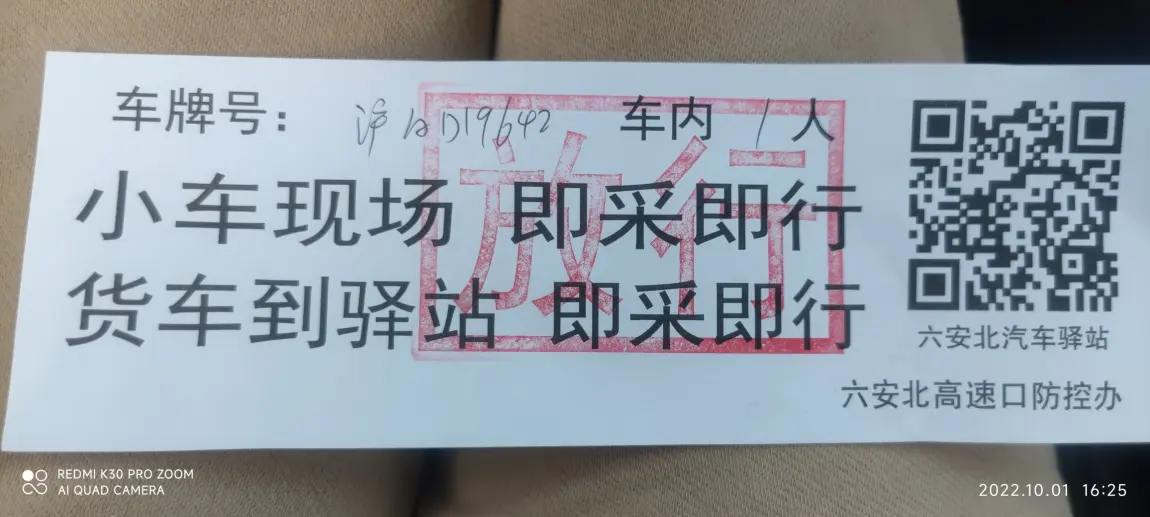 车牌号： 沪AD19642 车内 1 人
放行
小车现场 即采即行
货车到驿站 即采即行
六安北汽车驿站
六安北高速口防控办
REDMI K30 PRO ZOOM
AI QUAD CAMERA
2022.10.01 16:25